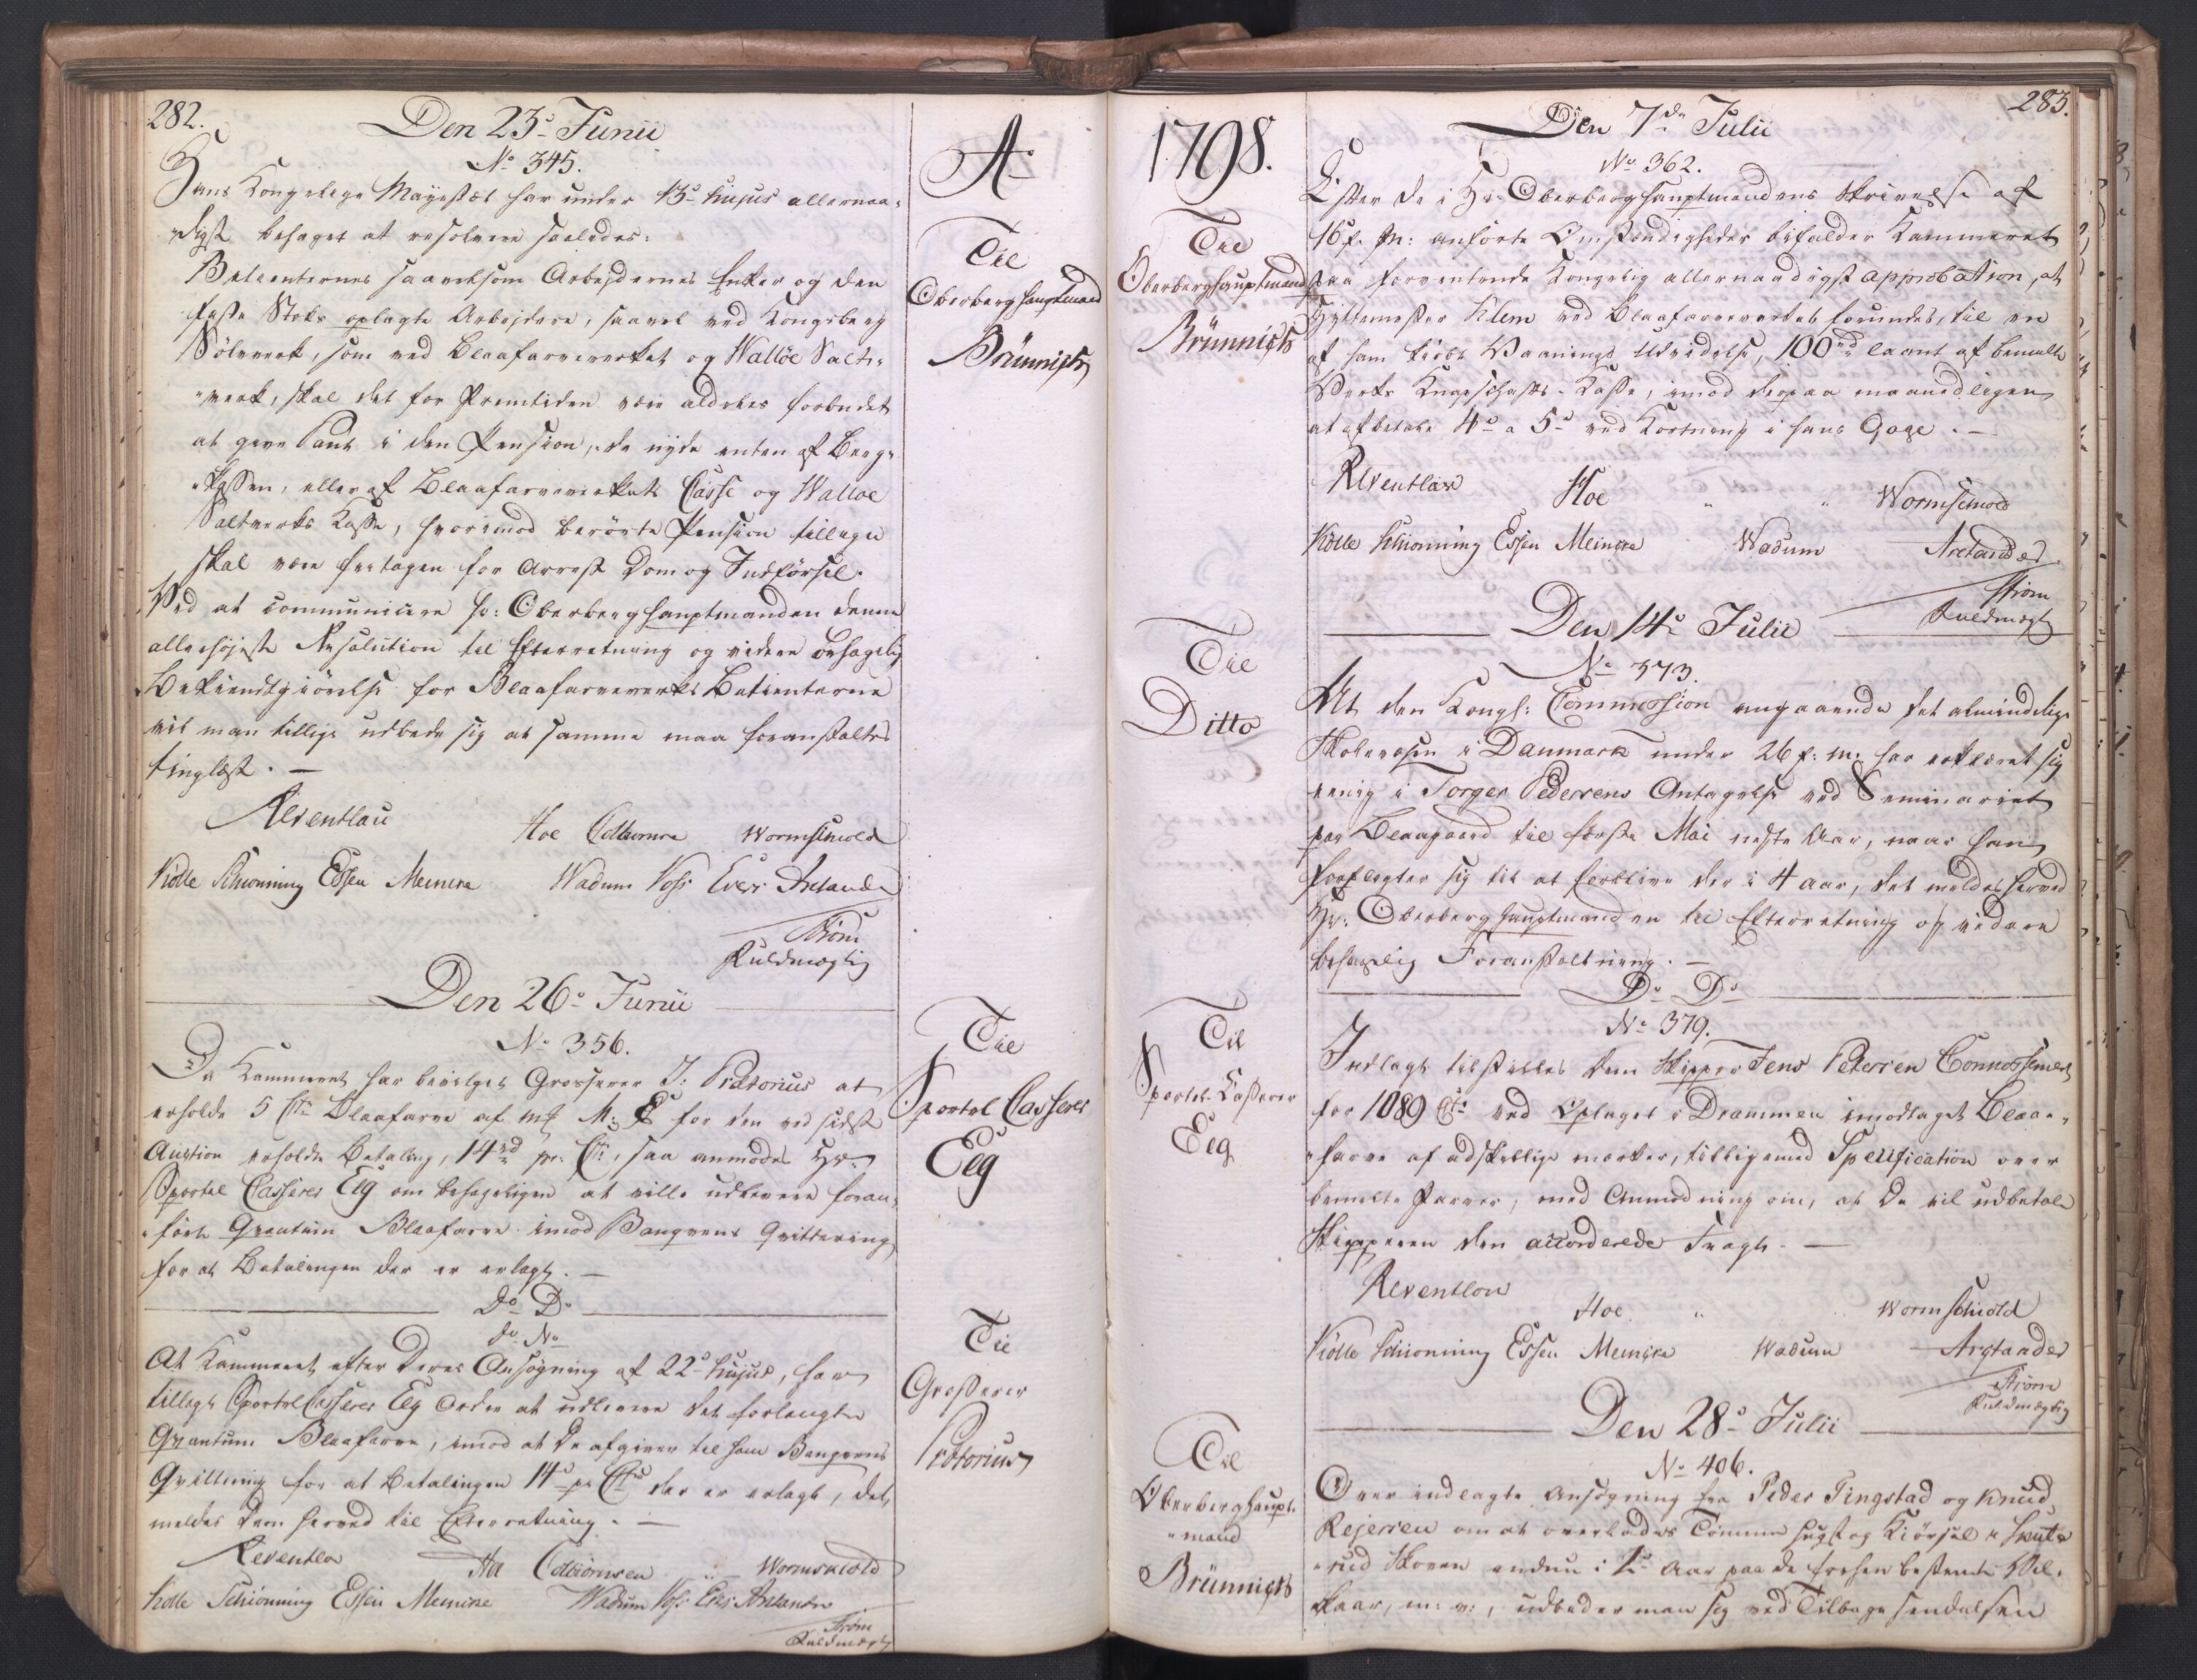 282.
Den 23de Junii
No 345.
Hans Kongelige Mayestæt har under 13de hujus allernaa-
digst behaget at resolvere saaledes:
Betienternes saavelsom Arbejdernes Enker og den
faste Stoks oplagte Arbejdere, saavel ved Kongsberg
Sölverk, som ved Blaafarveverket og Walløe Salt-
verk, skal det for Fremtiden være aldeles forbudet
at give Pant i den Pension, de nyde enten af Berg-
Kassen, eller af Blaafarveverkets Casse og Walløe
Saltverks Kasse, hvorimod berörte Pension tillige
skal være fritagen for Arrest Dom og Indförsel.
Ved at communicere Hr: Oberberghauptmanden denne
allerhöjeste Resolution til Efterretning og videre behagelig
Bekiendtgiörelse for Blaafarveverks Betienterne
vil man tillige udbede sig at samme maa foranstaltes
tinglæst. —
Reventlau
Hoe Colbiornsen Wormskiold
Kiølle Schiønning Essen Meincke Wadum Voss Evers Arctander
Strøm
Fuldmægtig
Den 26de Junii
No 356.
Da Kammeret har bevilget Grosserer J: Prætorius at
erholde 5 Ctr Blaafarve af M: E for den ved sidste
Auction erholdte Betaling, 14rd pr: Ctr, saa anmodes Hr:
Sportel Casserer Eeg om behageligen at ville udlevere foran-
förte Qvantum Blaafarve imod Banqvens Qvittering
for at Betalingen der er erlagt. —
Do Do
do No
At Kammeret efter Deres Ansögning af 22de hujus, har
tillagt Sportel Casserer Eeg Ordre at udlevere det forlangte
Qvantum Blaafarve, imod at De afgiver til ham Banqvens
Qvittering for at Betalingen 14rd pr Ctr der er erlagt, det
meldes Dem herved til Efterretning. —
Reventlow Hoe Colbiørnsen Wormskiold
Kiølle Schiønning Essen Meincke Wadum Voss Evers Arctander
Strøm
Fuldmægtig
Ao
Til
Oberberghauptmand
Brünnich
Til
Sportel Casserer
Eeg
Til
Grosserer
Prætorius
1798.
Til
Oberberghauptmand
Brünnich
Til
Ditto
Til
Sportel-Casserer
Eeg
Til
Oberberghaupt-
mand
Brünnich
283.
Den 7de Julii
No 362.
Efter de i Hr: Oberberghauptmandens Skrivelse af
16 f: M: anförte Omstændigheder bifalder Kammeret
paa forventende Kongelig allernaadigst approbation, at
Hyttemester Klem ved Blaafarveverket forundes, til en
af ham kiøbt Vaanings Udvidelse, 100rd laant af bemeldte
Verks Knapschafts-Kasse, imod derpaa maanedligen
at afbetale 4rd a 5rd ved Kortning i hans Gage. —
Reventlow Hoe Wormskiold
Kiølle Schiønning Essen Meincke Wadum Arctander
Strøm
Fuldmægt
Den 14de Julii
No 373.
At den Kongl: Commission angaaende det almindelige
Skolevæsen i Danmark under 26 f: m: har erklæret sig
enig i Torger Pedersens Antagelse ved Seminariet
paa Blaagaard til förste Mai næste Aar, naar han
forpligter sig til at forblive der i 4 Aar, det meldes herved
Hr: Oberberghauptmanden til Efterretning og videre
behagelig Foranstaltning. —
Do Do
No 379.
Indlagt tilstilles Dem Skipper Jens Petersen Connossement
for 1089 Ctr ved Oplaget i Drammen imodtaget Blaae-
farve af adskillige mærker, tilligemed Specification over
bemeldte Farver, med Anmodning om, at De vil udbetale
Skipperen den accorderede Fragt. —
Reventlow
Hoe Wormskiold
Kiølle Schiønning Essen Meincke Wadum Arctander
Strøm
Fuldmægtig
Den 28de Julii
No 406.
Over indlagte Ansögning fra Peder Tingstad og Knud
Rejersen om at overlades Tömmer Hugst og Kiörsel i
-rud Skoven endnu i Aar paa de forhen bestemte Vil-
kaar, m: v:, udbeder man sig ved Tilbagesendelsen